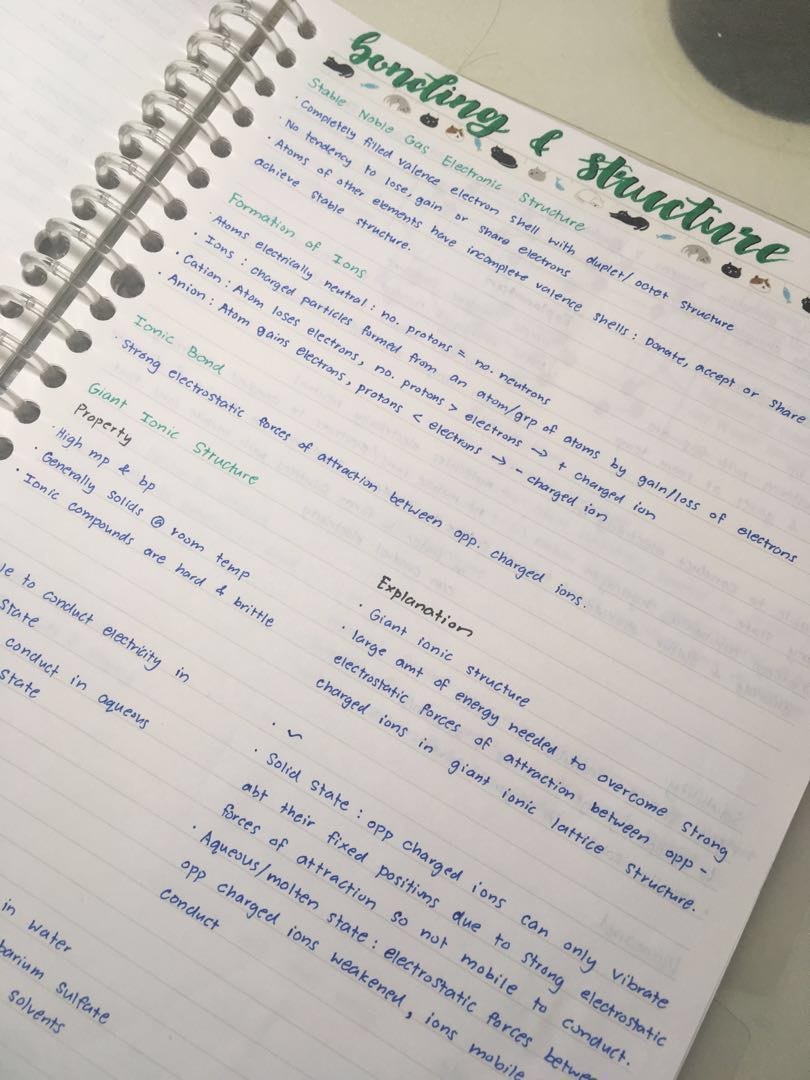 bonding & structure
Stable Noble Gas Electronic Structure
· Completely filled valence electron shell with duplet/octet structure
· No tendency to lose, gain or share electrons
· Atoms of other elements have incomplete valence shells : Donate, accept or share
achieve stable structure.
Formation of Ions
· Atoms electrically neutral : no. protons = no. neutrons
· Ions : charged particles formed from an atom/grp of atoms by gain/loss of electrons
· Cation : Atom loses electrons, no. protons > electrons → + charged ion
· Anion : Atom gains electrons, protons < electrons → - charged ion
Ionic Bond
· Strong electrostatic forces of attraction between opp. charged ions.
Giant Ionic Structure
Property
· High mp & bp
· Generally solids @ room temp
· Ionic compounds are hard & brittle
to conduct electricity in
state
conduct in aqueous
state
in water
barium sulfate
solvents
Explanation
· Giant ionic structure
· large amt of energy needed to overcome strong
electrostatic forces of attraction between opp -
charged ions in giant ionic lattice structure.
· Solid state : opp charged ions can only vibrate
abt their fixed positions due to strong electrostatic
forces of attraction so not mobile to conduct.
· Aqueous/molten state : electrostatic forces between
opp charged ions weakened, ions mobile
conduct